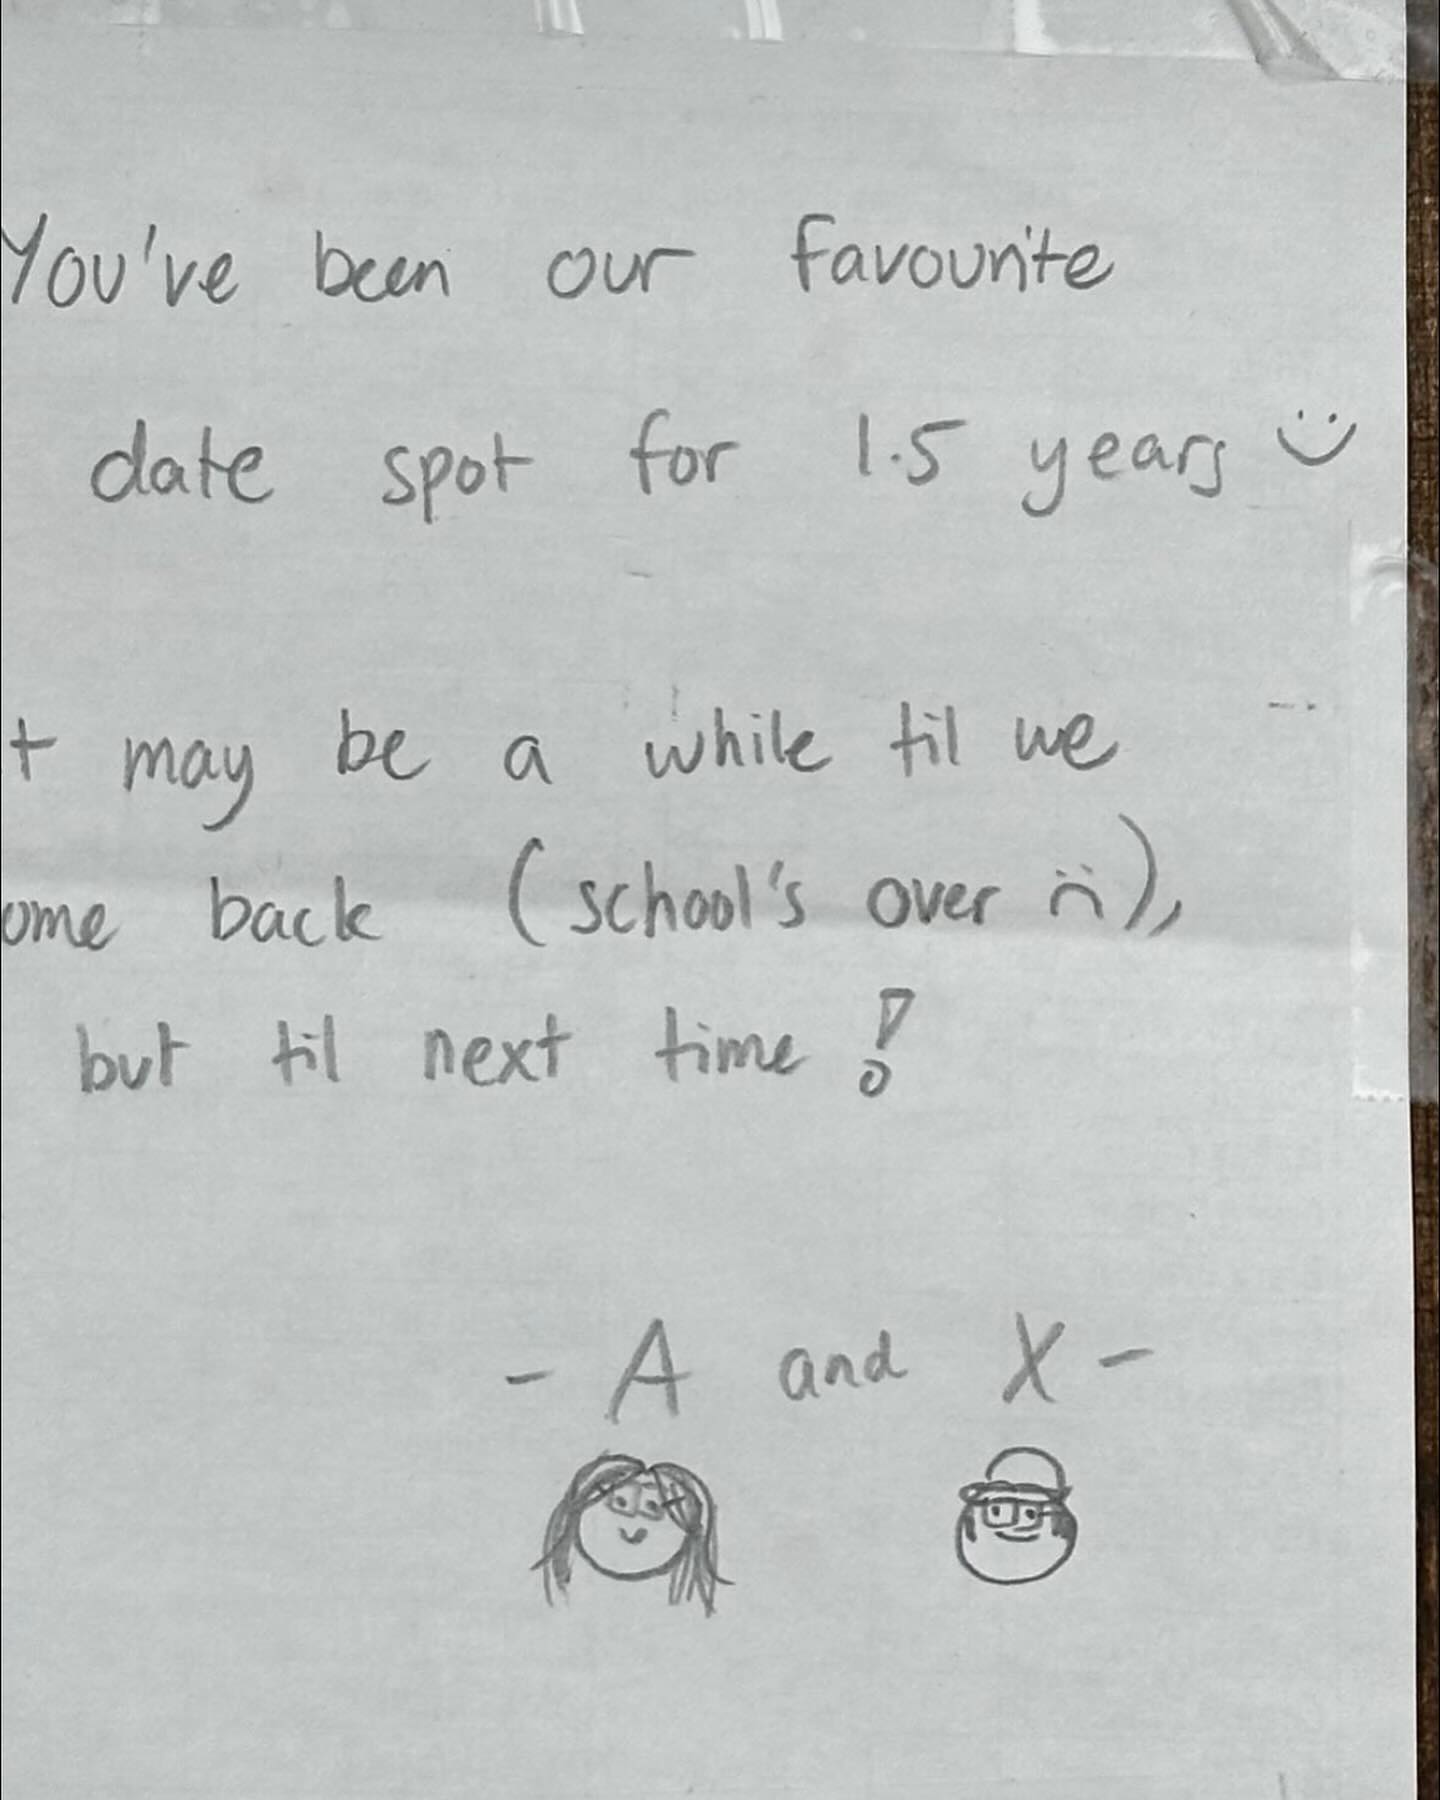 You've been our favourite
date spot for 1.5 years :)
t may be a while til we
ome back (school's over :(),
but til next time!
- A and X -